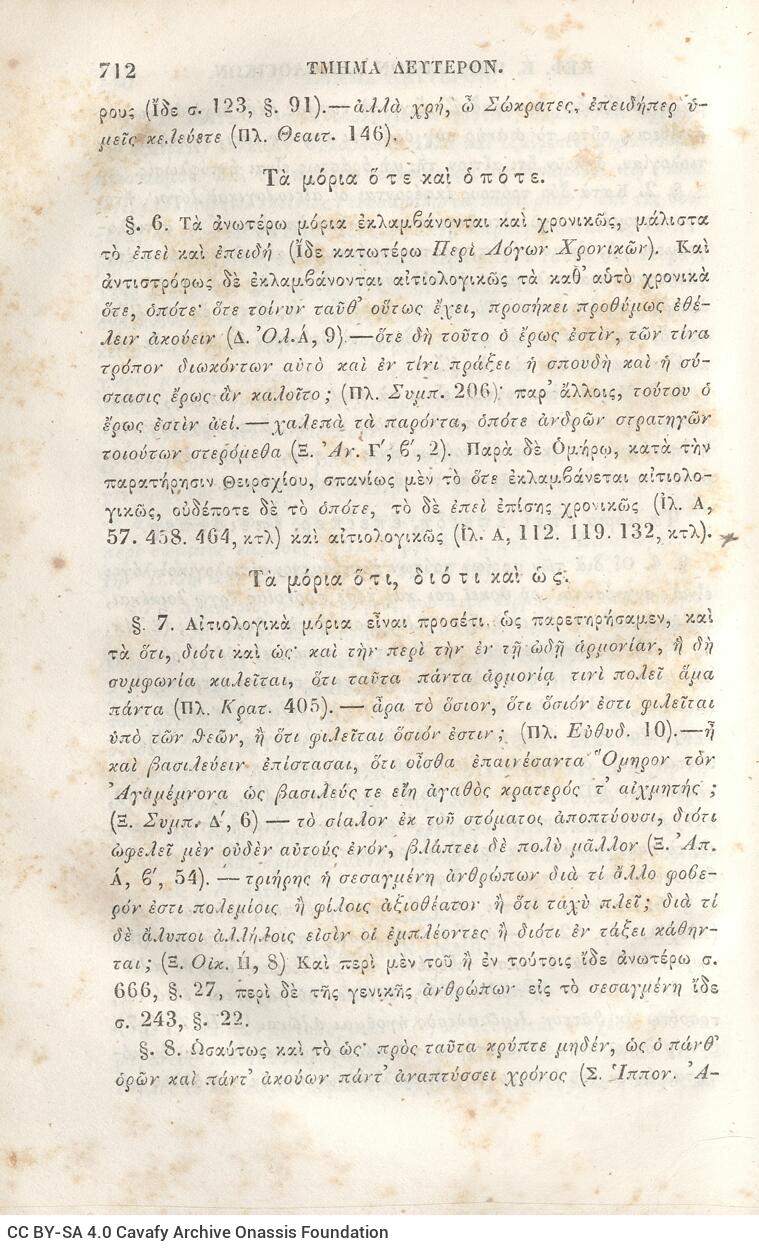 712 ΤΜΗΜΑ ΔΕΥΤΕΡΟΝ.
ρους (Ἴδε σ. 123, §. 91).—ἀλλὰ χρή, ὦ Σώκρατες, ἐπειδήπερ ὑ-
μεῖς κελεύετε (Πλ. Θεαιτ. 146).
Τὰ μόρια ὅτε καὶ ὁπότε.
§. 6. Τὰ ἀνωτέρω μόρια ἐκλαμβάνονται καὶ χρονικῶς, μάλιστα
τὸ ἐπεὶ καὶ ἐπειδή (Ἴδε κατωτέρω Περὶ Λόγων Χρονικῶν). Καὶ
ἀντιστρόφως δὲ ἐκλαμβάνονται αἰτιολογικῶς τὰ καθ' αὑτὸ χρονικὰ
ὅτε, ὁπότε· ὅτε τοίνυν ταῦθ' οὕτως ἔχει, προσήκει προθύμως ἐθέ-
λειν ἀκούειν (Δ. Ὀλ. Ά, 9).—ὅτε δὴ τοῦτο ὁ ἔρως ἐστὶν, τῶν τίνα
τρόπον διωκόντων αὐτὸ καὶ ἐν τίνι πράξει ἡ σπουδὴ καὶ ἡ σύ-
στασις ἔρως ἂν καλοῖτο; (Πλ. Συμπ. 206)· παρ' ἄλλοις, τούτου ὁ
ἔρως ἐστὶν ἀεί.—χαλεπὰ τὰ παρόντα, ὁπότε ἀνδρῶν στρατηγῶν
τοιούτων στερόμεθα (Ξ. Ἀν. Γ', β', 2). Παρὰ δὲ Ὁμήρῳ, κατὰ τὴν
παρατήρησιν Θειρσχίου, σπανίως μὲν τὸ ὅτε ἐκλαμβάνεται αἰτιολο-
γικῶς, οὐδέποτε δὲ τὸ ὁπότε, τὸ δὲ ἐπεὶ ἐπίσης χρονικῶς (Ἰλ. Α,
57. 458. 464, κτλ) καὶ αἰτιολογικῶς (Ἰλ. Α, 112. 119. 132, κτλ).
Τὰ μόρια ὅτι, διότι καὶ ὡς.
§. 7. Αἰτιολογικὰ μόρια εἶναι προσέτι, ὡς παρετηρήσαμεν, καὶ
τὰ ὅτι, διότι καὶ ὡς· καὶ τὴν περὶ τὴν ἐν τῇ ᾠδῇ ἁρμονίαν, ἣ δὴ
συμφωνία καλεῖται, ὅτι ταῦτα πάντα ἁρμονίᾳ τινὶ πολεῖ ἅμα
πάντα (Πλ. Κρατ. 405).—ἆρα τὸ ὅσιον, ὅτι ὅσιόν ἐστι φιλεῖται
ὑπὸ τῶν θεῶν, ἢ ὅτι φιλεῖται ὅσιόν ἐστιν; (Πλ. Εὐθυδ. 10).—ἦ
καὶ βασιλεύειν ἐπίστασαι, ὅτι οἶσθα ἐπαινέσαντα Ὅμηρον τὸν
Ἀγαμέμνονα ὡς βασιλεύς τε εἴη ἀγαθὸς κρατερός τ' αἰχμητής;
(Ξ. Συμπ. Δ', 6)—τὸ σίαλον ἐκ τοῦ στόματος ἀποπτύουσι, διότι
ὠφελεῖ μὲν οὐδὲν αὐτοὺς ἐνόν, βλάπτει δὲ πολὺ μᾶλλον (Ξ. Ἀπ.
Ά, β', 54).—τριήρης ἡ σεσαγμένη ἀνθρώπων διὰ τί ἄλλο φοβε-
ρόν ἐστι πολεμίοις ἢ φίλοις ἀξιοθέατον ἢ ὅτι ταχὺ πλεῖ; διὰ τί
δὲ ἄλυποι ἀλλήλοις εἰσὶν οἱ ἐμπλέοντες ἢ διότι ἐν τάξει κάθην-
ται; (Ξ. Οἰκ. Ή, 8) Καὶ περὶ μὲν τοῦ ἢ ἐν τούτοις ἴδε ἀνωτέρω σ.
666, §. 27, περὶ δὲ τῆς γενικῆς ἀνθρώπων εἰς τὸ σεσαγμένη ἴδε
σ. 243, §. 22.
§. 8. Ὡσαύτως καὶ τὸ ὡς· πρὸς ταῦτα κρύπτε μηδέν, ὡς ὁ πάνθ'
ὁρῶν καὶ πάντ' ἀκούων πάντ' ἀναπτύσσει χρόνος (Σ. Ἱππον. Ἀ-
CC BY-SA 4.0 Cavafy Archive Onassis Foundation